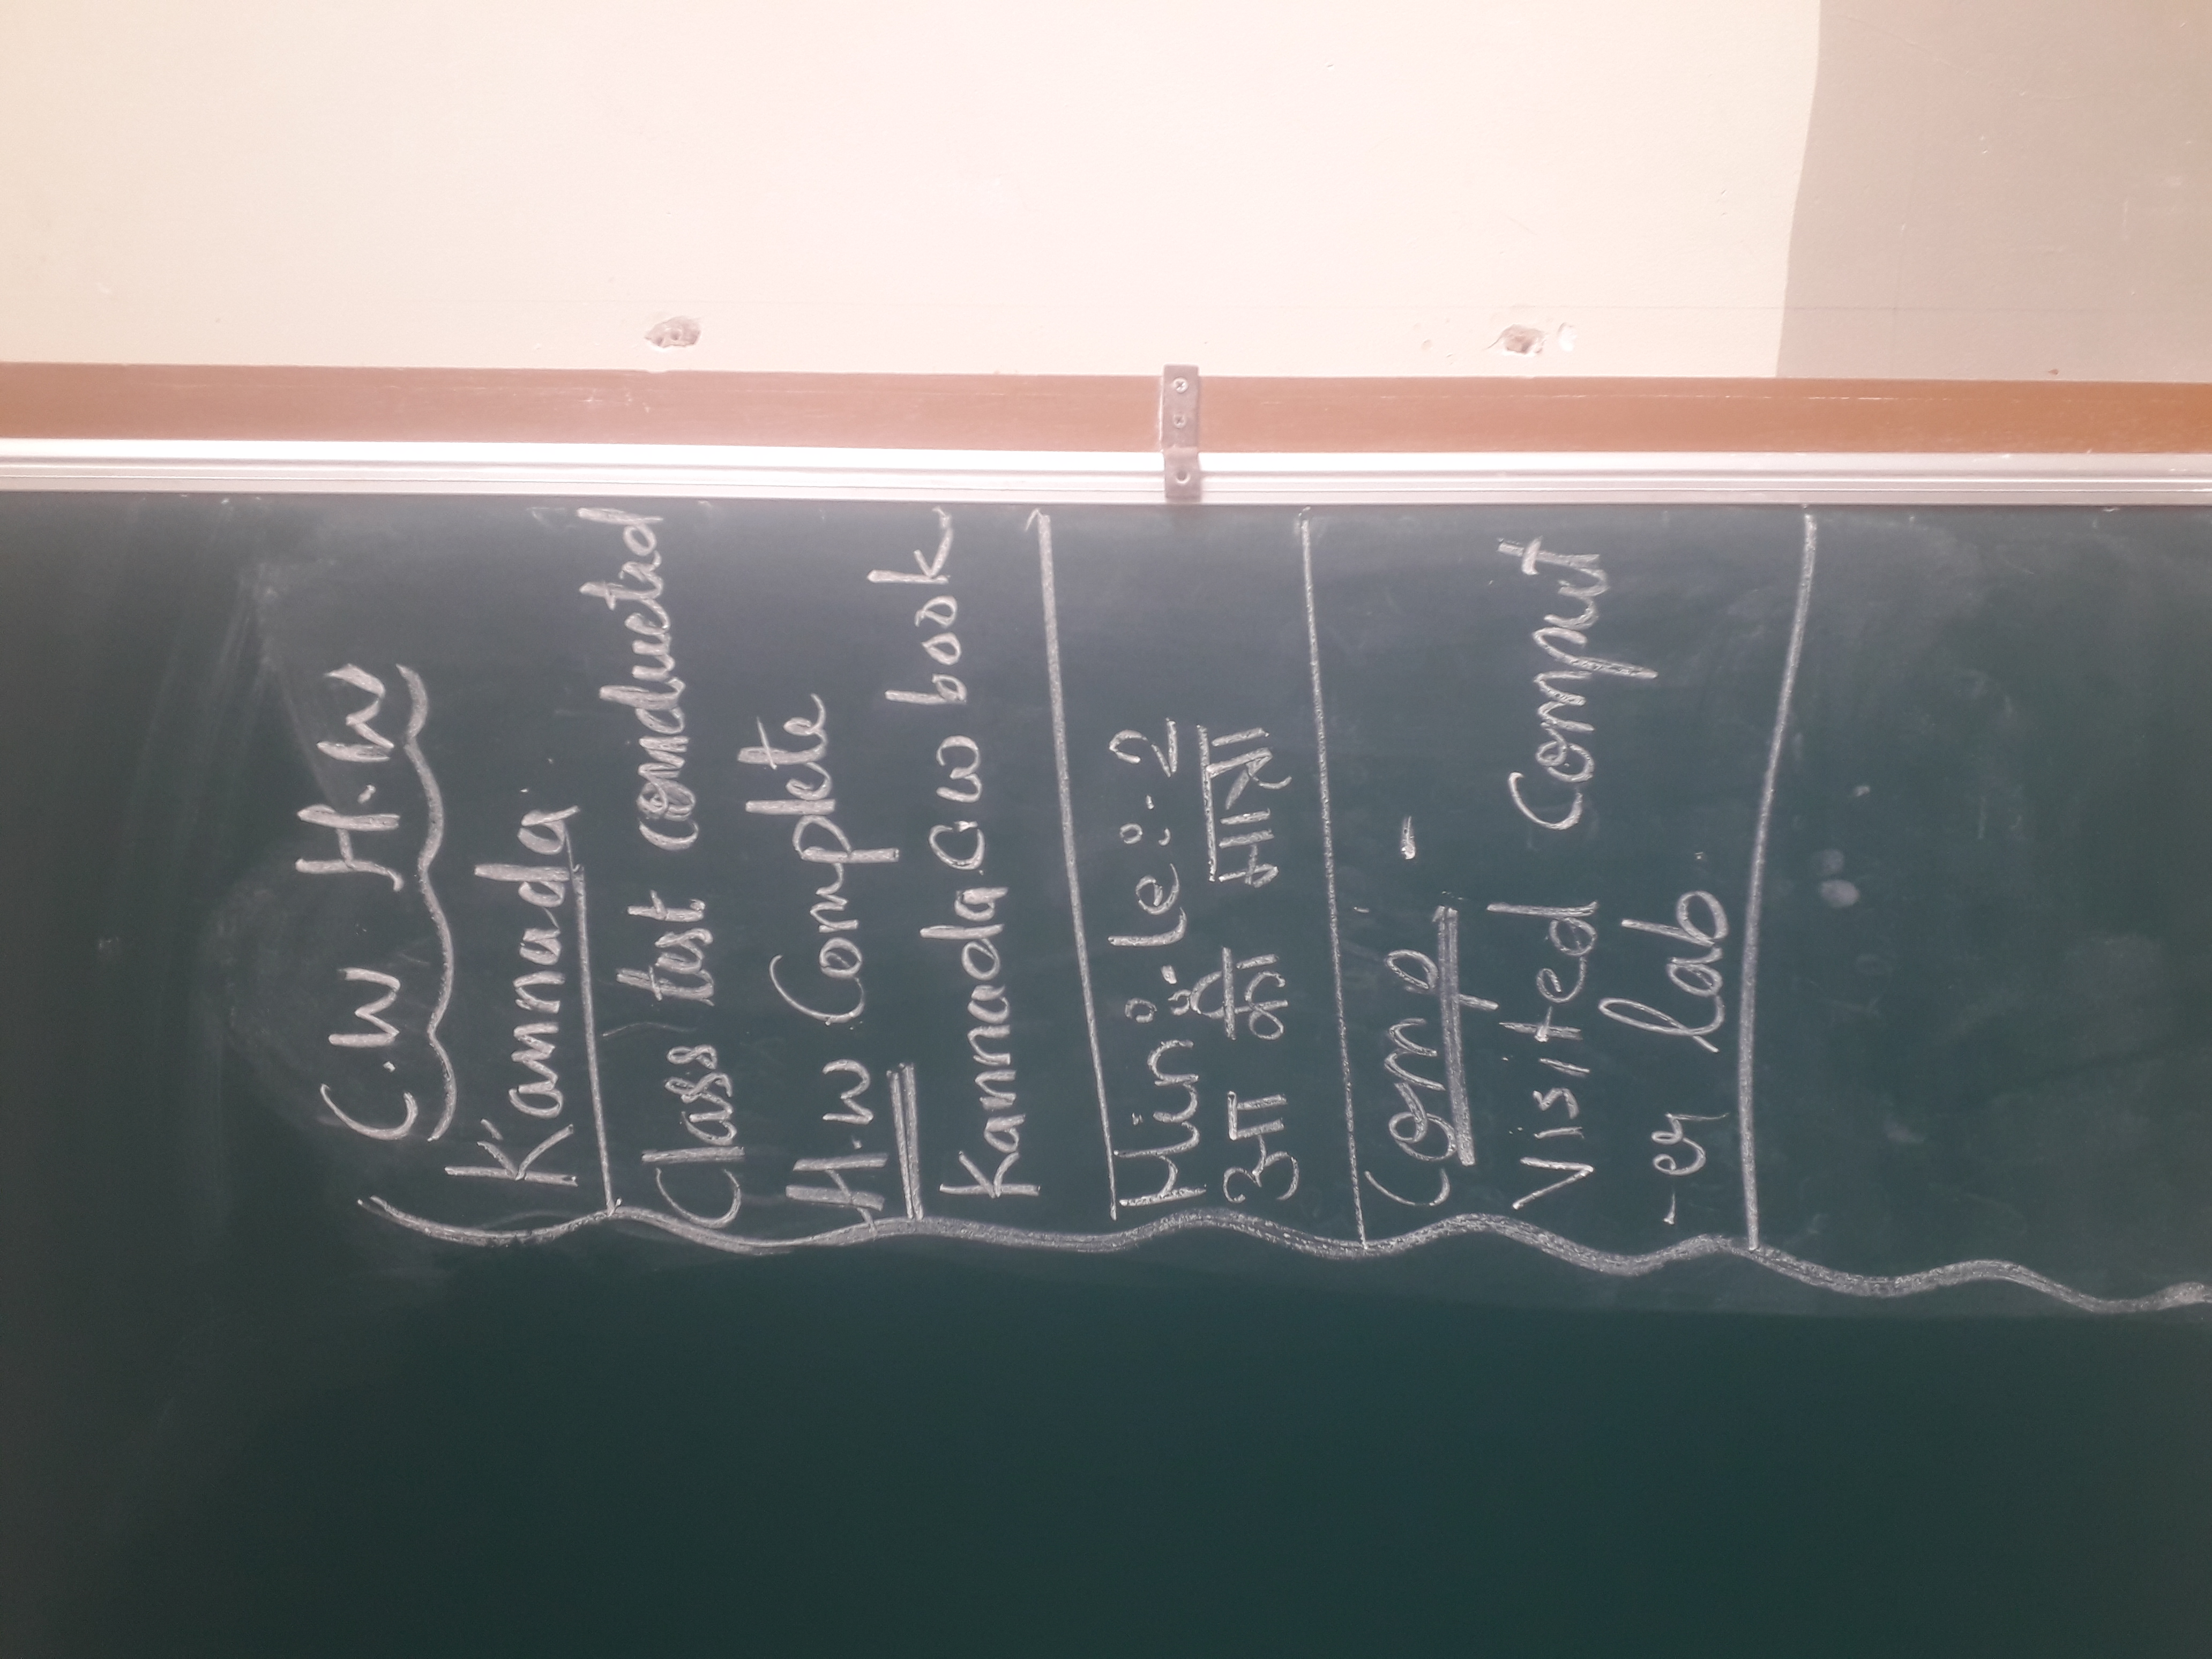 C.W H.W
Kannada
Class test conducted
H.W Complete
Kannada C W book
Hin:- Le:-2
आ की मात्रा
Comp -
Visited Comput
-er lab.